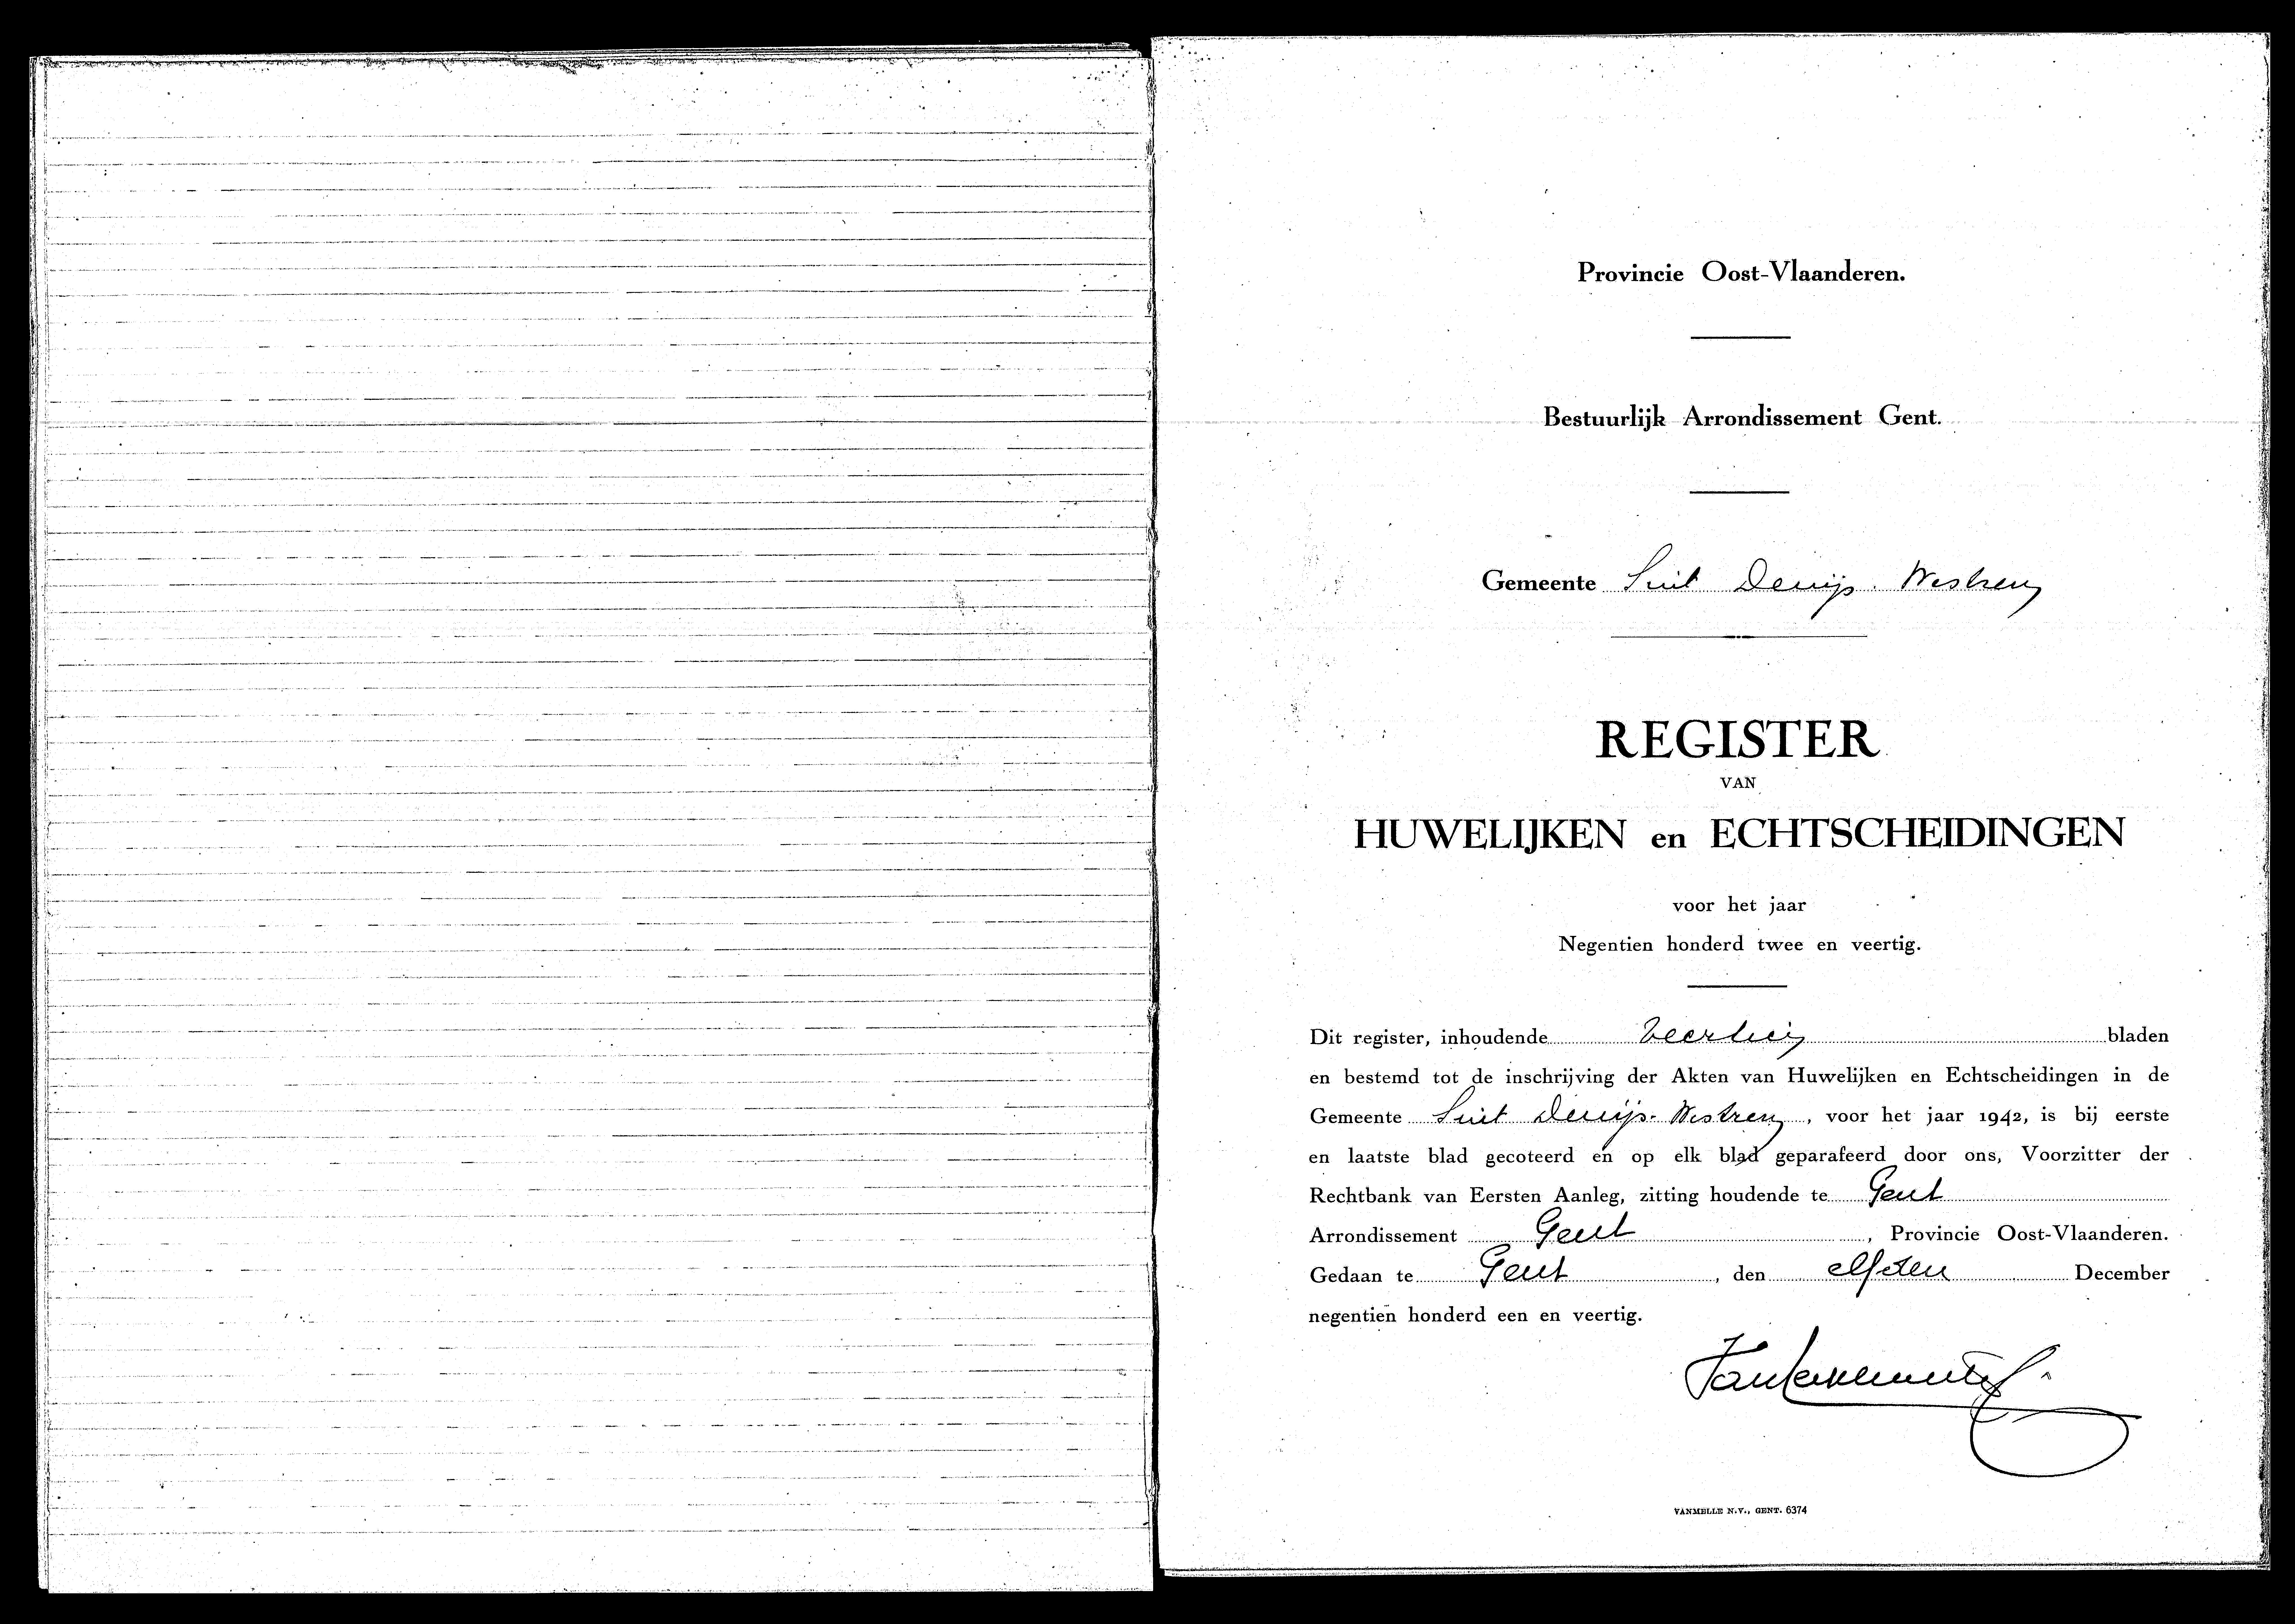 Provincie Oost-Vlaanderen.
Bestuurlijk Arrondissement Gent.
Gemeente Sint Denijs-Westrem
REGISTER
VAN
HUWELIJKEN en ECHTSCHEIDINGEN
voor het jaar
Negentien honderd twee en veertig.
Dit register, inhoudende veertien bladen
en bestemd tot de inschrijving der Akten van Huwelijken en Echtscheidingen in de
Gemeente Sint Denijs-Westrem, voor het jaar 1942, is bij eerste
en laatste blad gecoteerd en op elk blad geparafeerd door ons, Voorzitter der
Rechtbank van Eersten Aanleg, zitting houdende te Gent
Arrondissement Gent, Provincie Oost-Vlaanderen.
Gedaan te Gent, den elfden December
negentien honderd een en veertig.
VANMELLE N.V., GENT. 6374